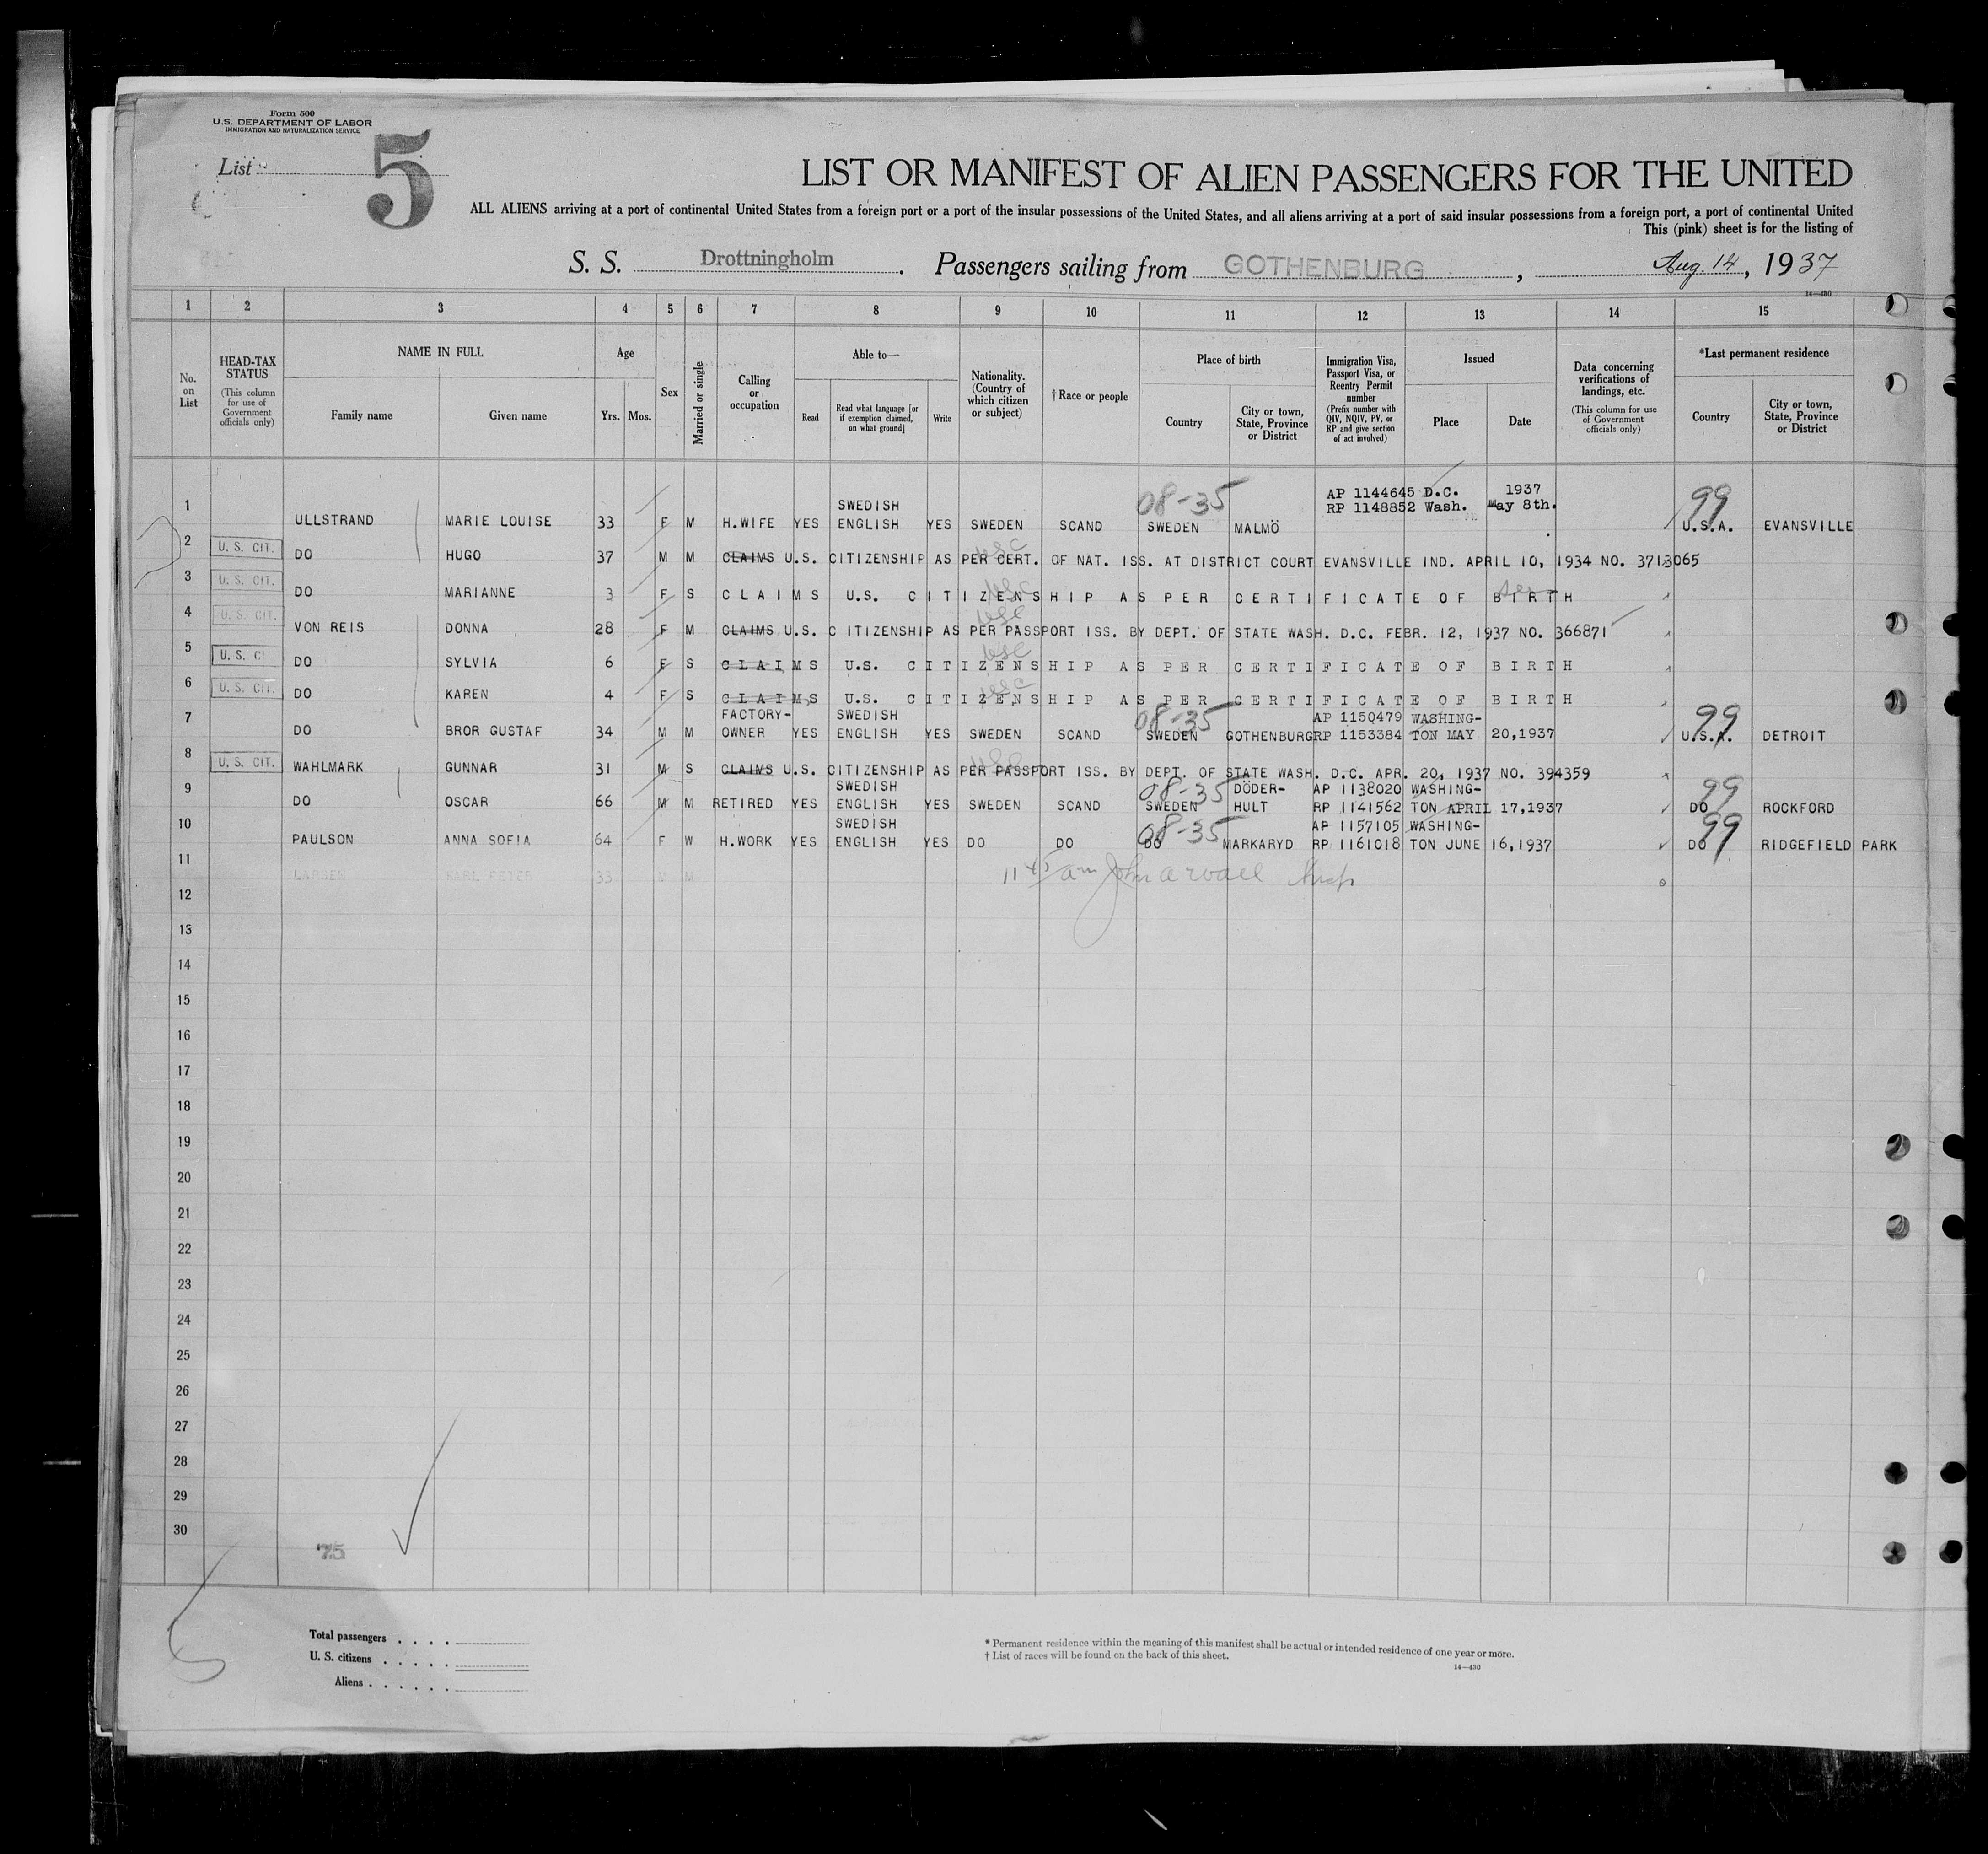 Form 500
U.S. DEPARTMENT OF LABOR
IMMIGRATION AND NATURALIZATION SERVICE
List 5
LIST OR MANIFEST OF ALIEN PASSENGERS FOR THE UNITED
ALL ALIENS arriving at a port of continental United States from a foreign port or a port of the insular possessions of the United States, and all aliens arriving at a port of said insular possessions from a foreign port, a port of continental United
This (pink) sheet is for the listing of
S. S. Drottningholm. Passengers sailing from GOTHENBURG, Aug. 14, 1937
14—430
1 2 3 4 5 6 7 8 9 10 11 12 13 14 15
No. on List
HEAD-TAX STATUS (This column for use of Government officials only)
NAME IN FULL
Family name
Given name
Age
Yrs. Mos.
Sex
Married or single
Calling or occupation
Able to—
Read
Read what language [or if exemption claimed, on what ground]
Write
Nationality. (Country of which citizen or subject)
†Race or people
Place of birth
Country
City or town, State, Province or District
Immigration Visa, Passport Visa, or Reentry Permit number (Prefix number with QIV, NQIV, PV, or RP and give section of act involved)
Issued
Place
Date
Data concerning verifications of landings, etc. (This column for use of Government officials only)
*Last permanent residence
Country
City or town, State, Province or District
SWEDISH 08-35 AP 1144645 D.C. 1937 99
1 ULLSTRAND MARIE LOUISE 33 F M H.WIFE YES ENGLISH YES SWEDEN SCAND SWEDEN MALMÖ RP 1148852 Wash. May 8th. U.S.A. EVANSVILLE
2 U. S. CIT. DO HUGO 37 M M CLAIMS U.S. CITIZENSHIP AS PER CERT. OF NAT. ISS. AT DISTRICT COURT EVANSVILLE IND. APRIL 10, 1934 NO. 3713065
usc
3 U. S. CIT. DO MARIANNE 3 F S CLAIMS U.S. CITIZENSHIP AS PER CERTIFICATE OF BIRTH
usc
4 U. S. CIT. VON REIS DONNA 28 F M CLAIMS U.S. CITIZENSHIP AS PER PASSPORT ISS. BY DEPT. OF STATE WASH. D.C. FEBR. 12, 1937 NO. 366871
usc
5 U. S. CI DO SYLVIA 6 F S CLAIMS U.S. CITIZENSHIP AS PER CERTIFICATE OF BIRTH
usc
6 U. S. CIT. DO KAREN 4 F S CLAIMS U.S. CITIZENSHIP AS PER CERTIFICATE OF BIRTH
usc
FACTORY- SWEDISH 08-35 AP 1150479 WASHING- 99
7 DO BROR GUSTAF 34 M M OWNER YES ENGLISH YES SWEDEN SCAND SWEDEN GOTHENBURG RP 1153384 TON MAY 20,1937 U.S.A. DETROIT
8 U. S. CIT. WAHLMARK GUNNAR 31 M S CLAIMS U.S. CITIZENSHIP AS PER PASSPORT ISS. BY DEPT. OF STATE WASH. D.C. APR. 20, 1937 NO. 394359
usc
SWEDISH 08-35 DÖDER- AP 1138020 WASHING- 99
9 DO OSCAR 66 M M RETIRED YES ENGLISH YES SWEDEN SCAND SWEDEN HULT RP 1141562 TON APRIL 17,1937 DO ROCKFORD
SWEDISH 08-35 AP 1157105 WASHING- 99
10 PAULSON ANNA SOFIA 64 F W H.WORK YES ENGLISH YES DO DO DO MARKARYD RP 1161018 TON JUNE 16,1937 DO RIDGEFIELD PARK
11 LARSEN KARL PETER 33 M M
11 45 am John Insp
12
13
14
15
16
17
18
19
20
21
22
23
24
25
26
27
28
29
30
75
Total passengers
U. S. citizens
Aliens
* Permanent residence within the meaning of this manifest shall be actual or intended residence of one year or more.
† List of races will be found on the back of this sheet.
14—430